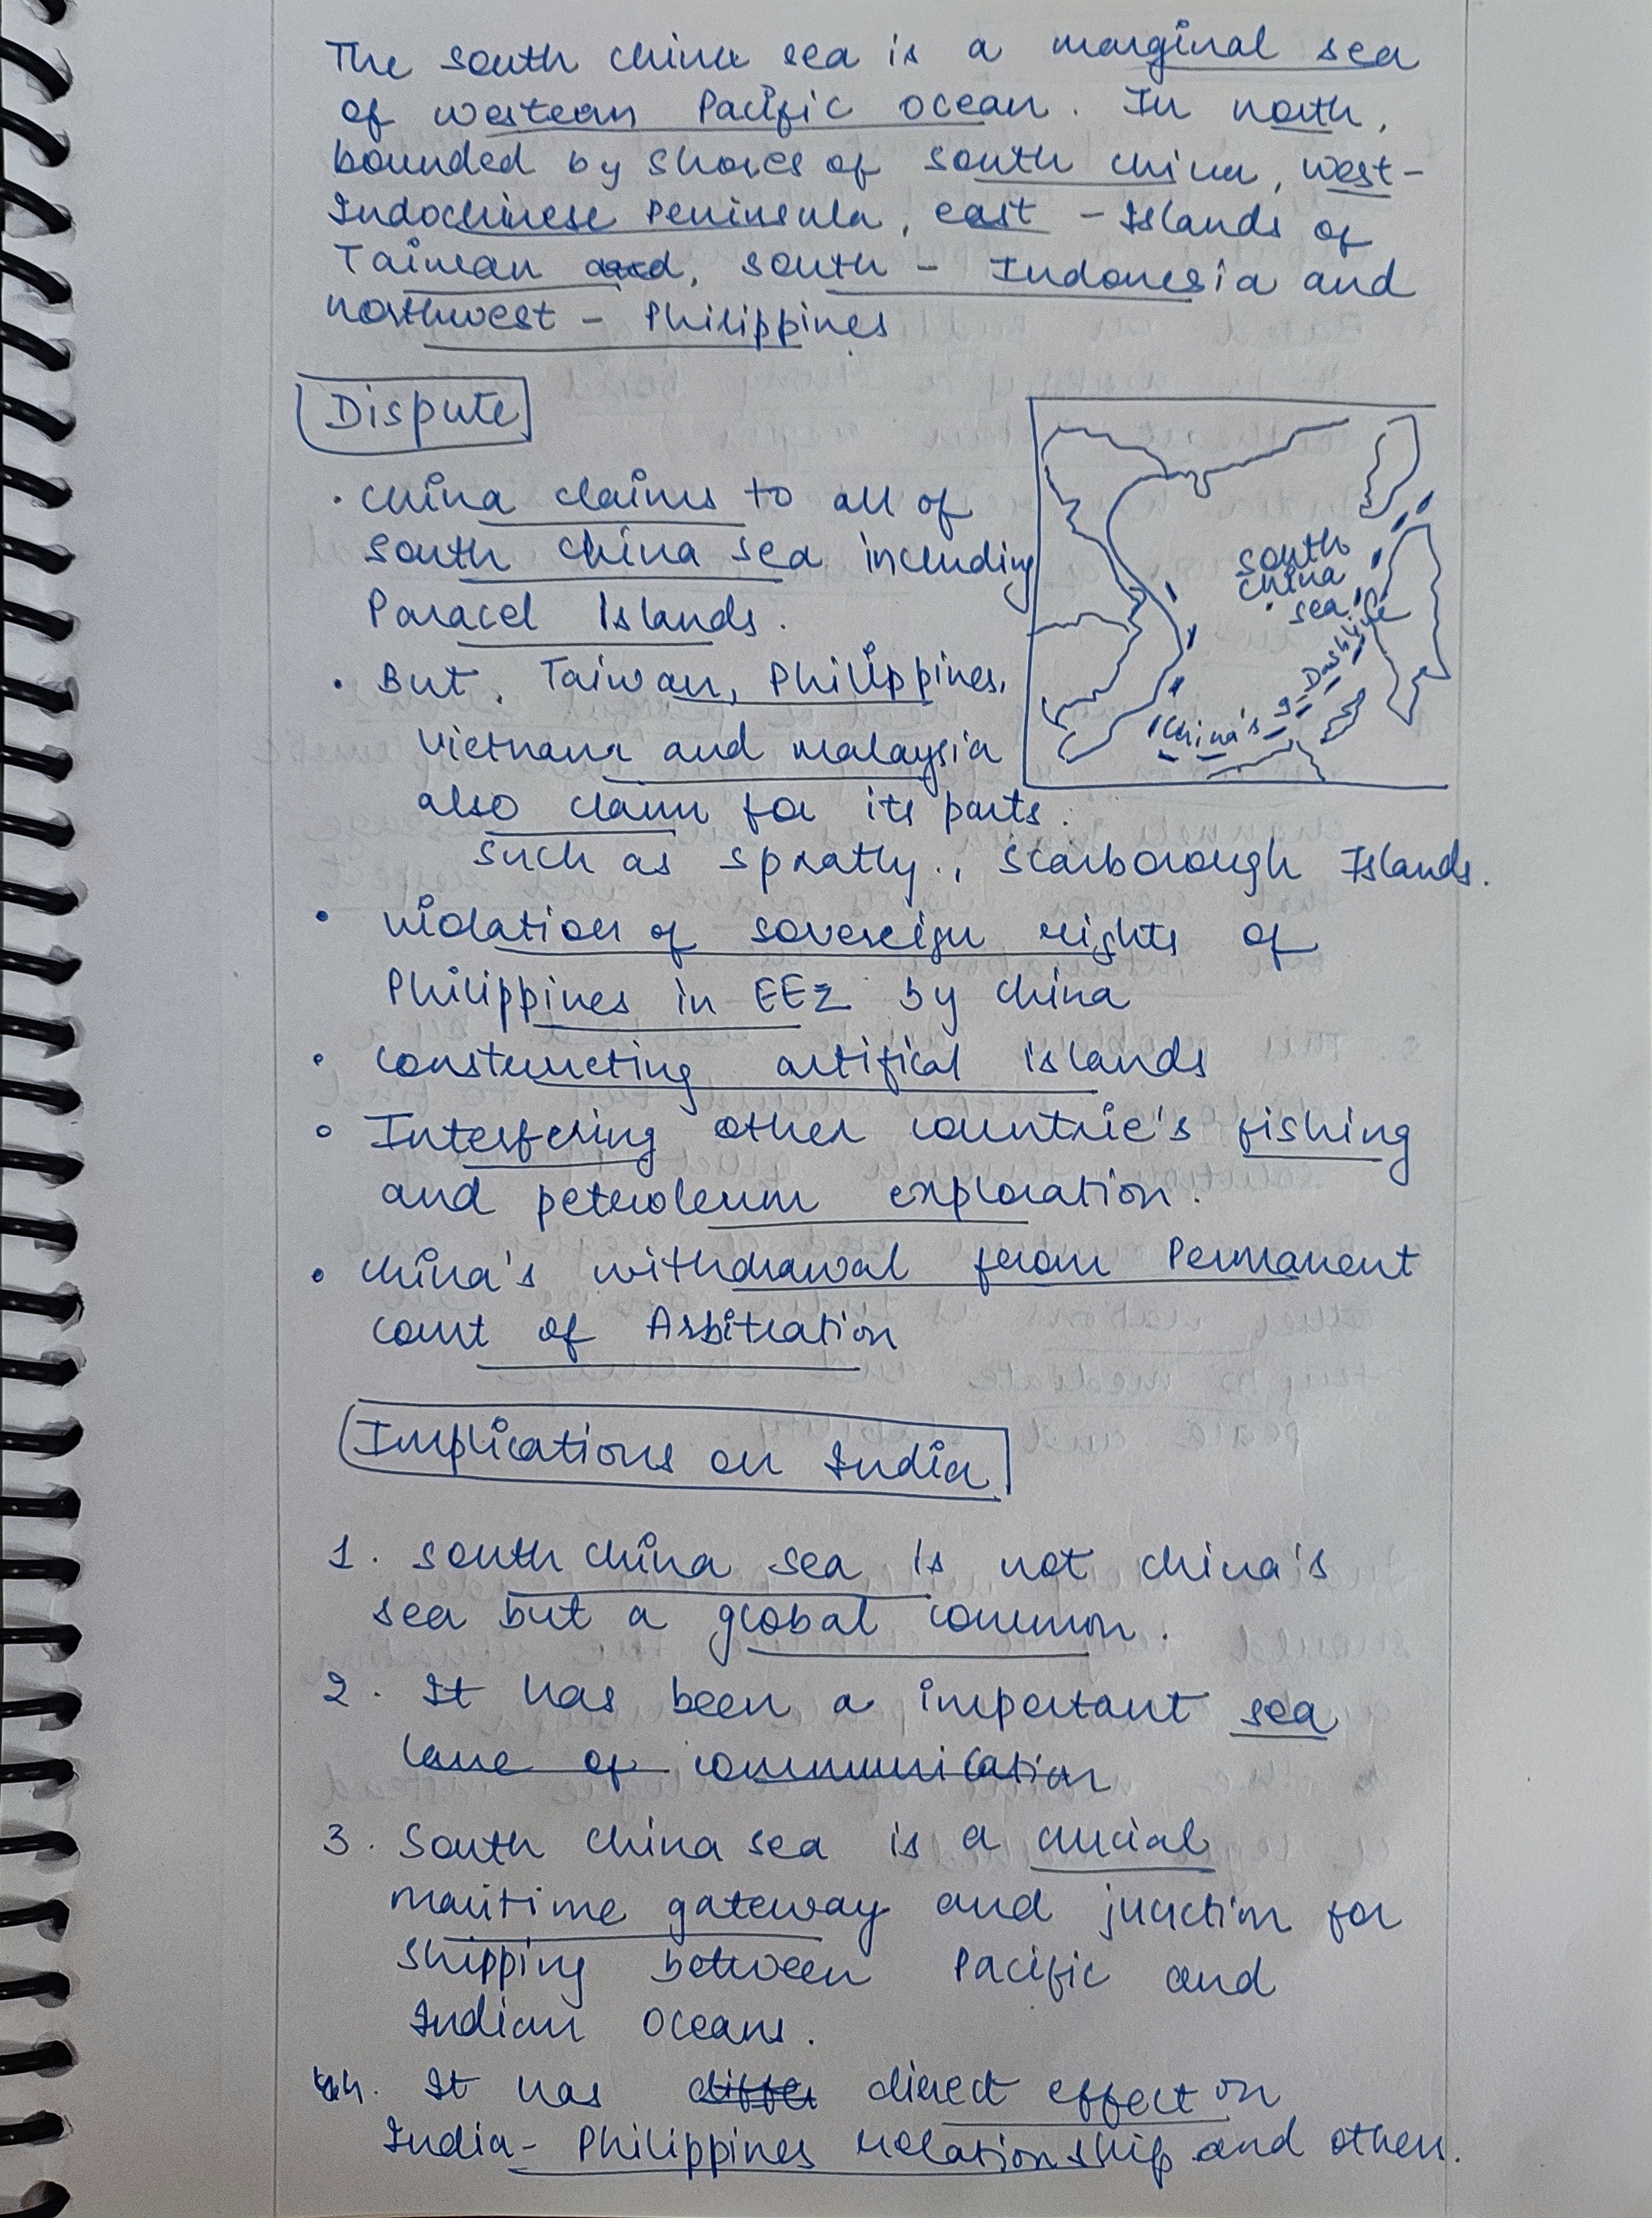 The south china sea is a marginal sea
of western Pacific ocean. In north,
bounded by shores of south china, west-
Indochinese Peninsula, east - Islands of
Taiwan and, south - Indonesia and
northwest - Philippines
Dispute
• China claims to all of
south china sea including
Paracel Islands.
• But, Taiwan, Philippines,
vietnam and malaysia
also claim for its parts.
such as spratly., scarborough Islands.
• violation of sovereign rights of
Philippines in EEZ by china
• constructing artifical islands
• Interfering other countrie's fishing
and petroleum exploration.
• China's withdrawal from Permanent
court of Arbitration
south
china
sea
China's 9 Dash line
Implications on India
1. south china sea is not china's
sea but a global common.
2. It has been a important sea
lane of communication
3. South china sea is a crucial
maritime gateway and junction for
shipping between Pacific and
Indian oceans.
4. It has direct effect on
India - Philippines relationship and others.